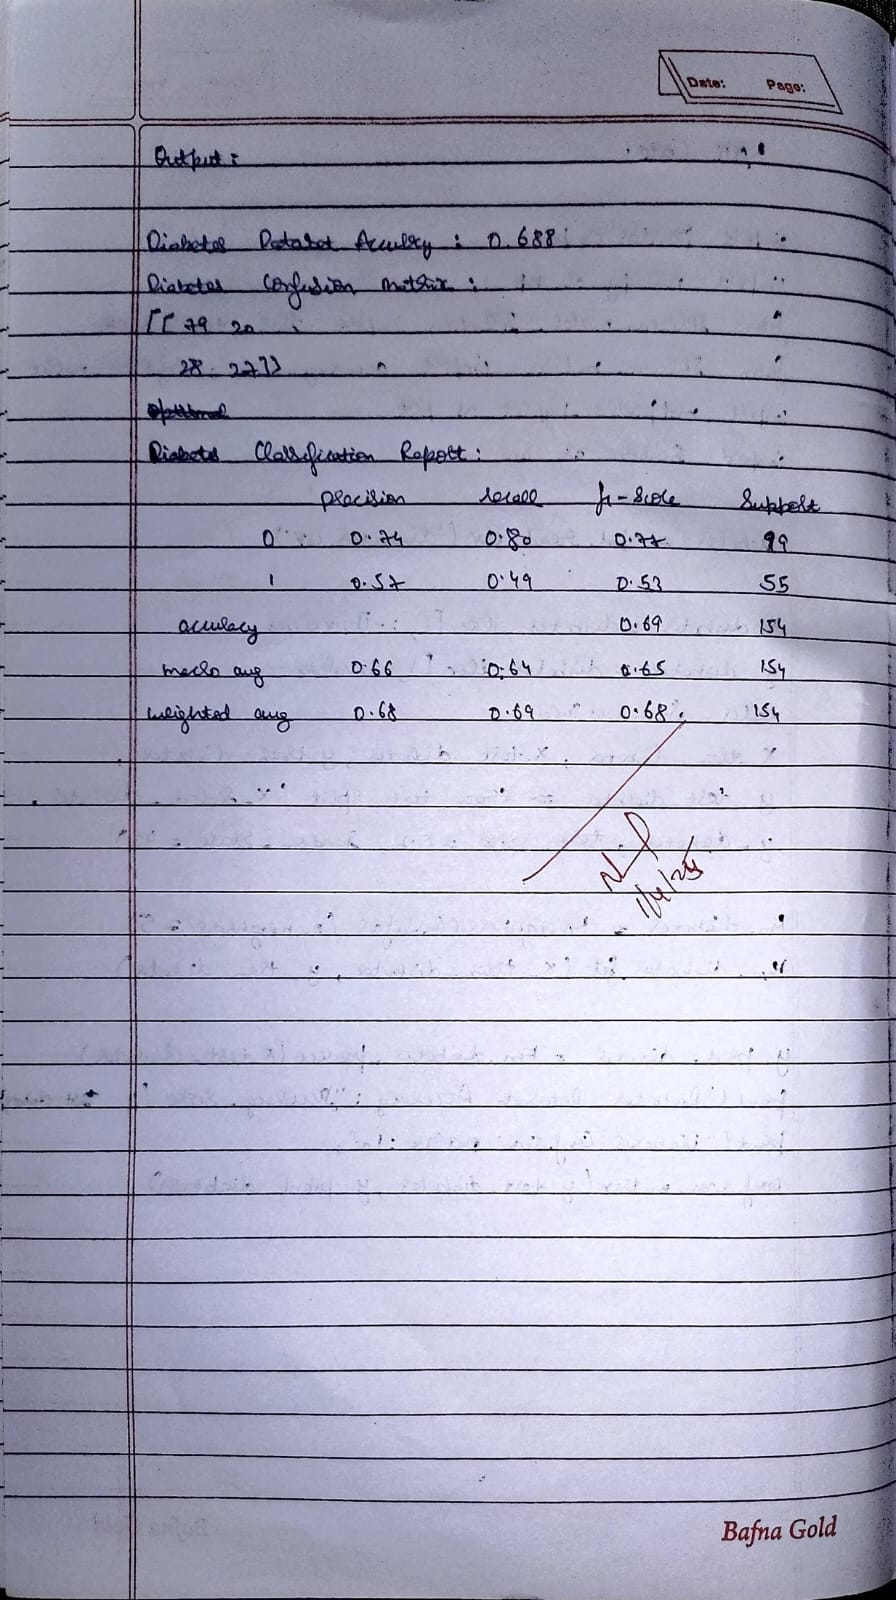 Date: Page:
Output :
Diabetes Dataset Accuracy : 0.688
Diabetes Confusion matrix :
[[ 79 20
28 27]]
Diabetes Classification Report :
precision recall f1-score support
0 0.74 0.80 0.77 99
1 0.57 0.49 0.53 55
accuracy 0.69 154
macro avg 0.66 0.64 0.65 154
weighted avg 0.68 0.69 0.68 154
Bafna Gold